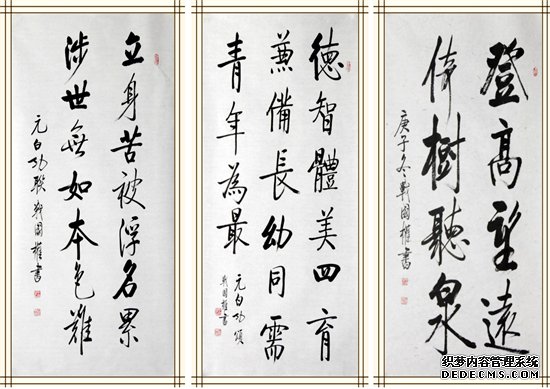 立身苦被浮名累
涉世無如本色難
元白功聯 戰國權書
德智體美四育
兼備長幼同需
青年為最
元白功頌
戰國權書
登高望遠
倚樹聽泉
庚子冬戰國權書
织梦内容管理系统
DEDECMS.COM